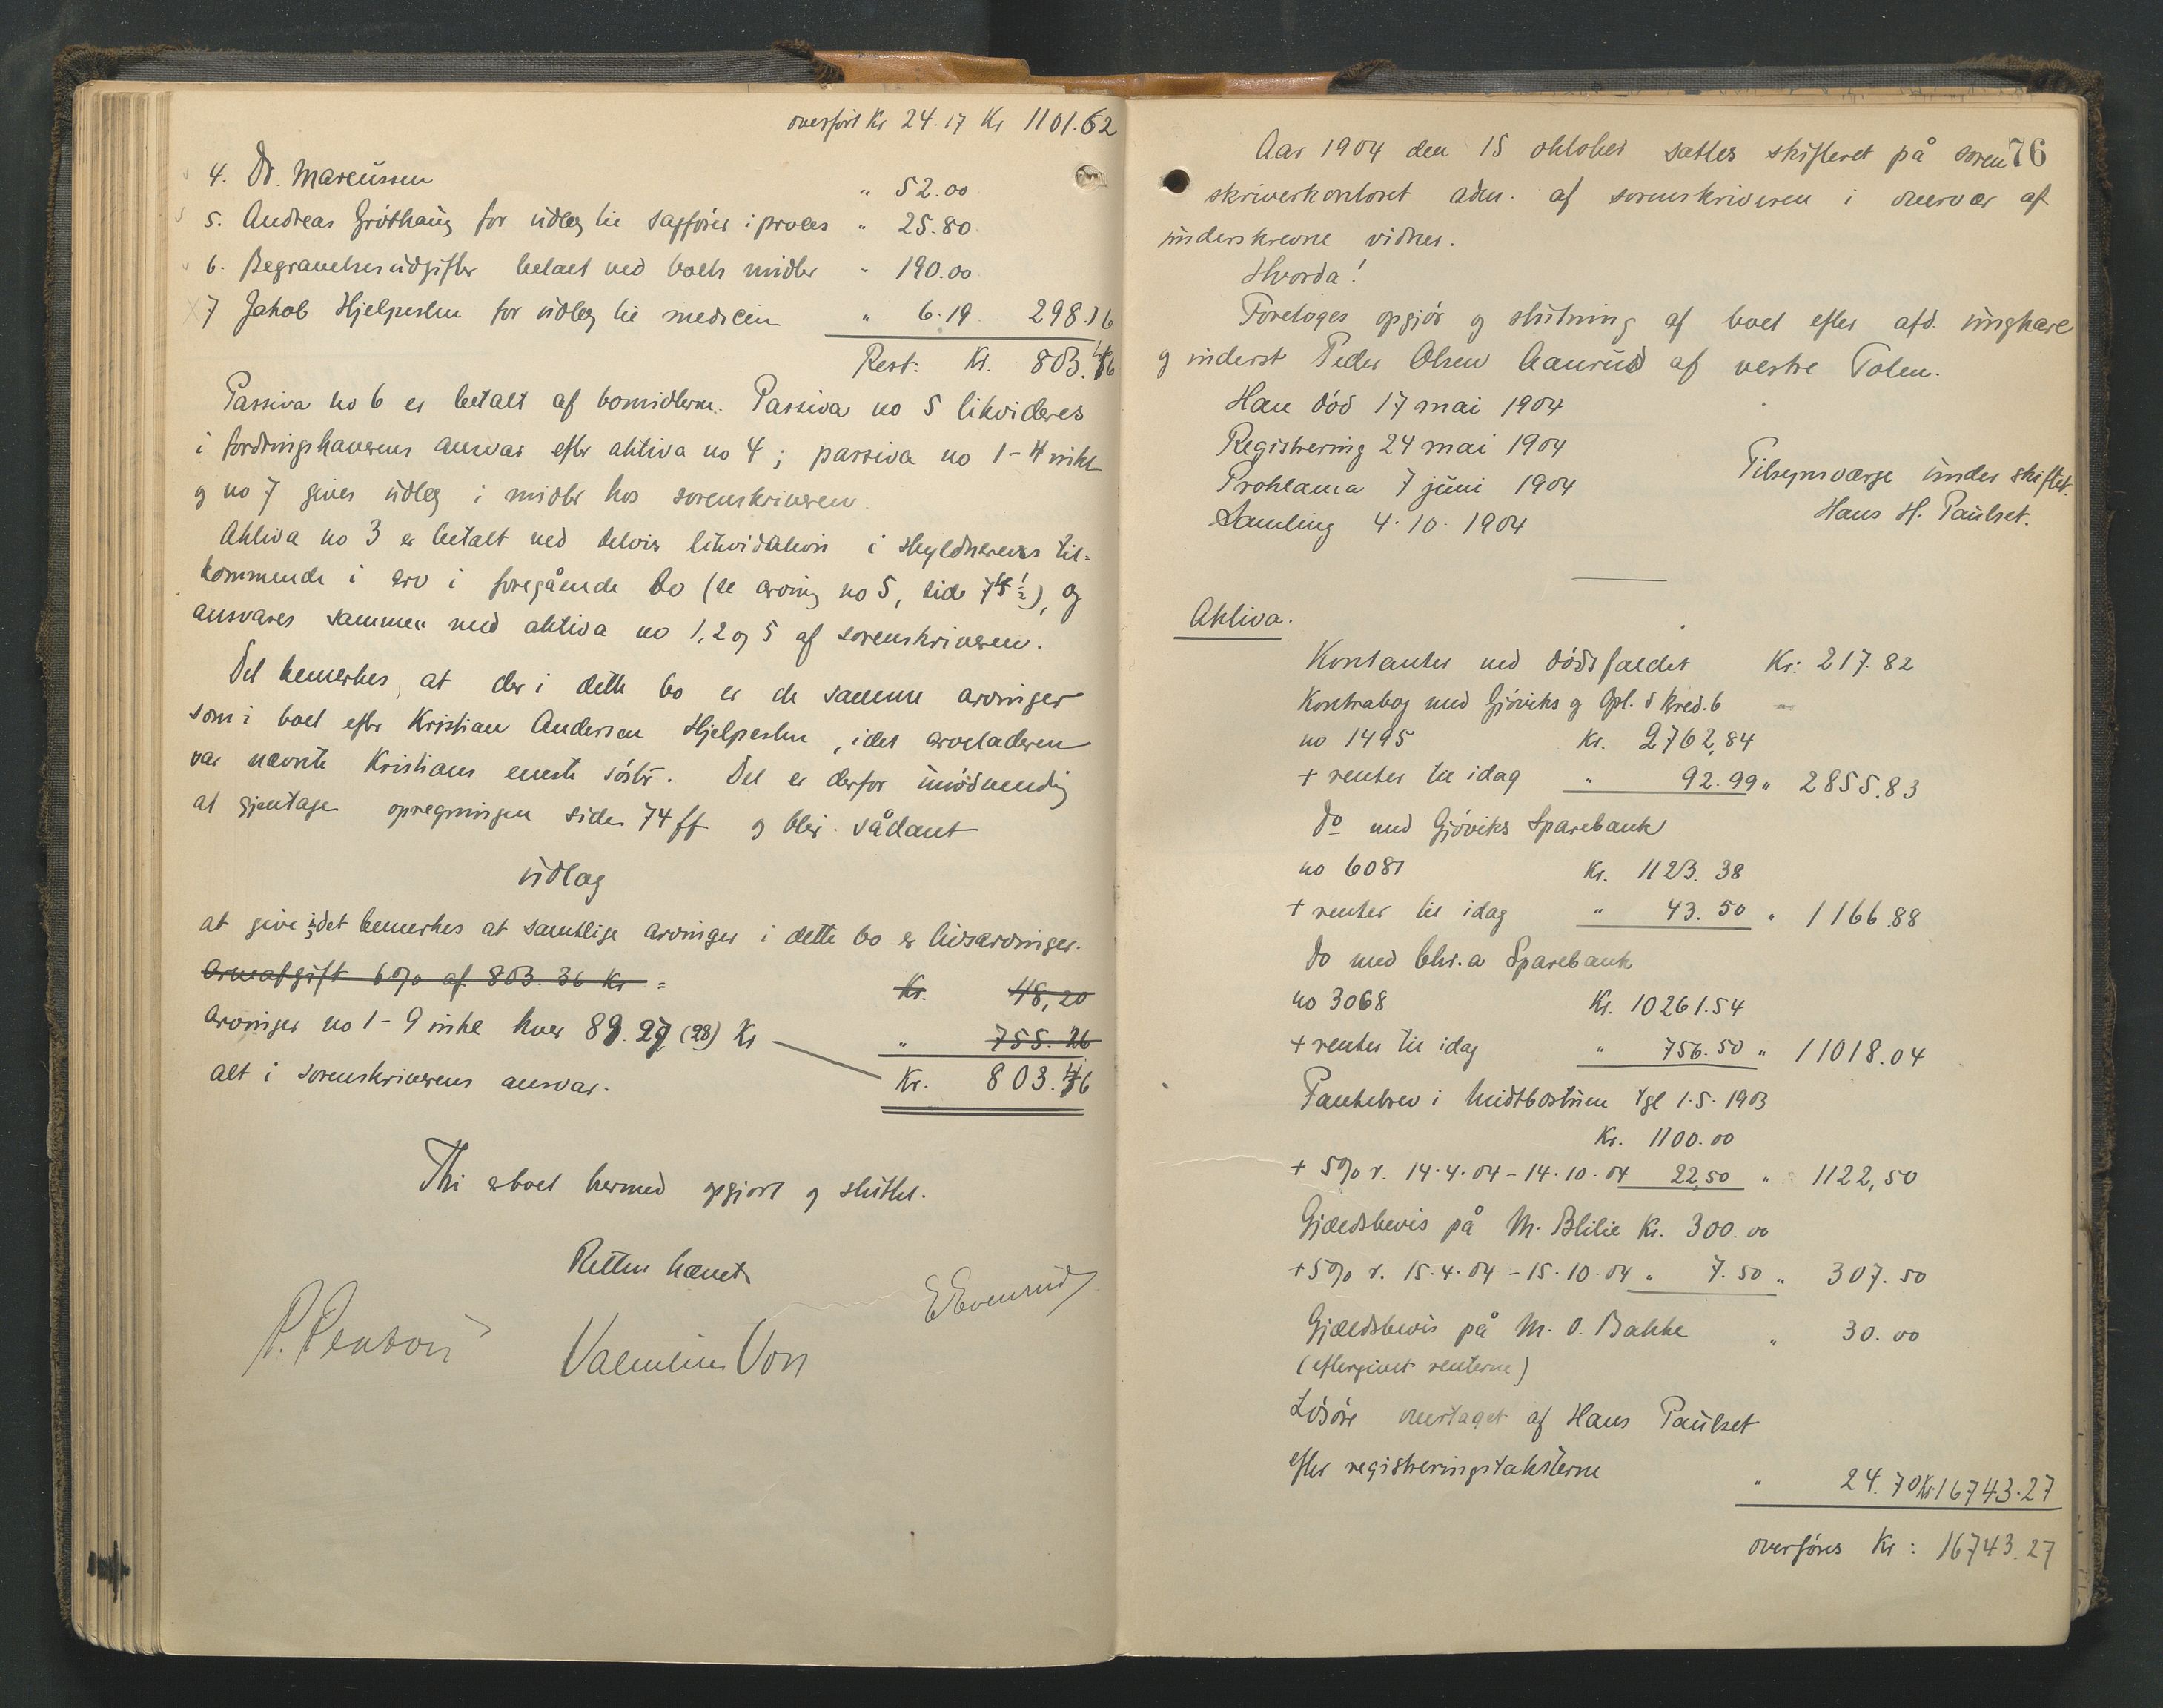 overført Kr 24.17 Kr 1101.62
4. Dr. Marcussen " 52.00
5. Andreas Gröthaug for udlæg til sagfører i proces " 25.80
6. Begravelsesudgifter betalt ved boets midler " 190.00
7 Jakob Hjelpesten for udlæg til medicin " 6.19 298.16
Rest. Kr. 803.46
Passiva no 6 er betalt af bomidlerne. Passiva no 5 likvideres
i fordringshaverens ansvar efter aktiva no 4; passiva no 1-4 inkl
og no 7 gives udlæg i midler hos sorenskriveren.
Aktiva no 3 er betalt ved delvis likvidation i skyldnerens til-
kommende i arv i foregående bo (se arving no 5, side 75½), og
ansvares sammen med aktiva no 1, 2 og 5 af sorenskriveren.
Det bemerkes, at der i dette bo er de samme arvinger
som i boet efter Kristian Andersen Hjelpesten, idet arveladeren
var nævnte Kristians eneste søster. Det er derfor unødvendig
at gjentage opregningen side 74 ff og blir sådant
udlæg
at give idet bemerkes at samtlige arvinger i dette bo er livsarvinger.
Arveafgift 6% af 803.36 Kr = Kr. 48,20
Arvinger no 1-9 inkl hver 89.27 (28) Kr " 755.26
alt i sorenskriverens ansvar. Kr. 803.46
Thi er boet hermed opgjort og sluttet.
Retten hævet
E Evenrud
76
Aar 1904 den 15 oktober sattes skifteret på soren
skriverkontoret adm. af sorenskriveren i overvær af
underskrevne vidner.
Hvorda!
Foretoges opgjør og slutning af boet efter afd. ungkarl
og inderst Peder Olsen Aanrud af vestre Toten.
Han død 17 mai 1904
Registrering 24 mai 1904
Proklama 7 juni 1904
Samling 4.10.1904
Tilsynsværge under skiftet.
Hans H. Paulset.
Aktiva.
Kontanter ved dødsfaldet Kr: 217.82
Kontrabog med Gjøviks og Opl. s kred.b
no 1495 Kr. 2762,84
+ renter til idag " 92.99 " 2855.83
Do med Gjøviks Sparebank
no 6081 Kr. 1123.38
+ renter til idag " 43.50 " 1166.88
Do med Chr.a Sparebank
no 3068 Kr. 10261.54
+ renter til idag " 756.50 " 11018.04
Pantebrev i Midtbostuen tgl 1.5.1903
Kr. 1100.00
+ 5% r. 14.4.04 - 14.10.04 22,50 " 1122,50
Gjældsbevis på M. Blilie Kr. 300.00
+ 5% r. 15.4.04 - 15.10.04 " 7.50 " 307.50
Gjældsbevis på M. O. Bakke " 30.00
(eftergivet renterne)
Løsøre overtaget af Hans Paulset
efter registreringstaksterne " 24.70 Kr 16743.27
overføres Kr: 16743.27